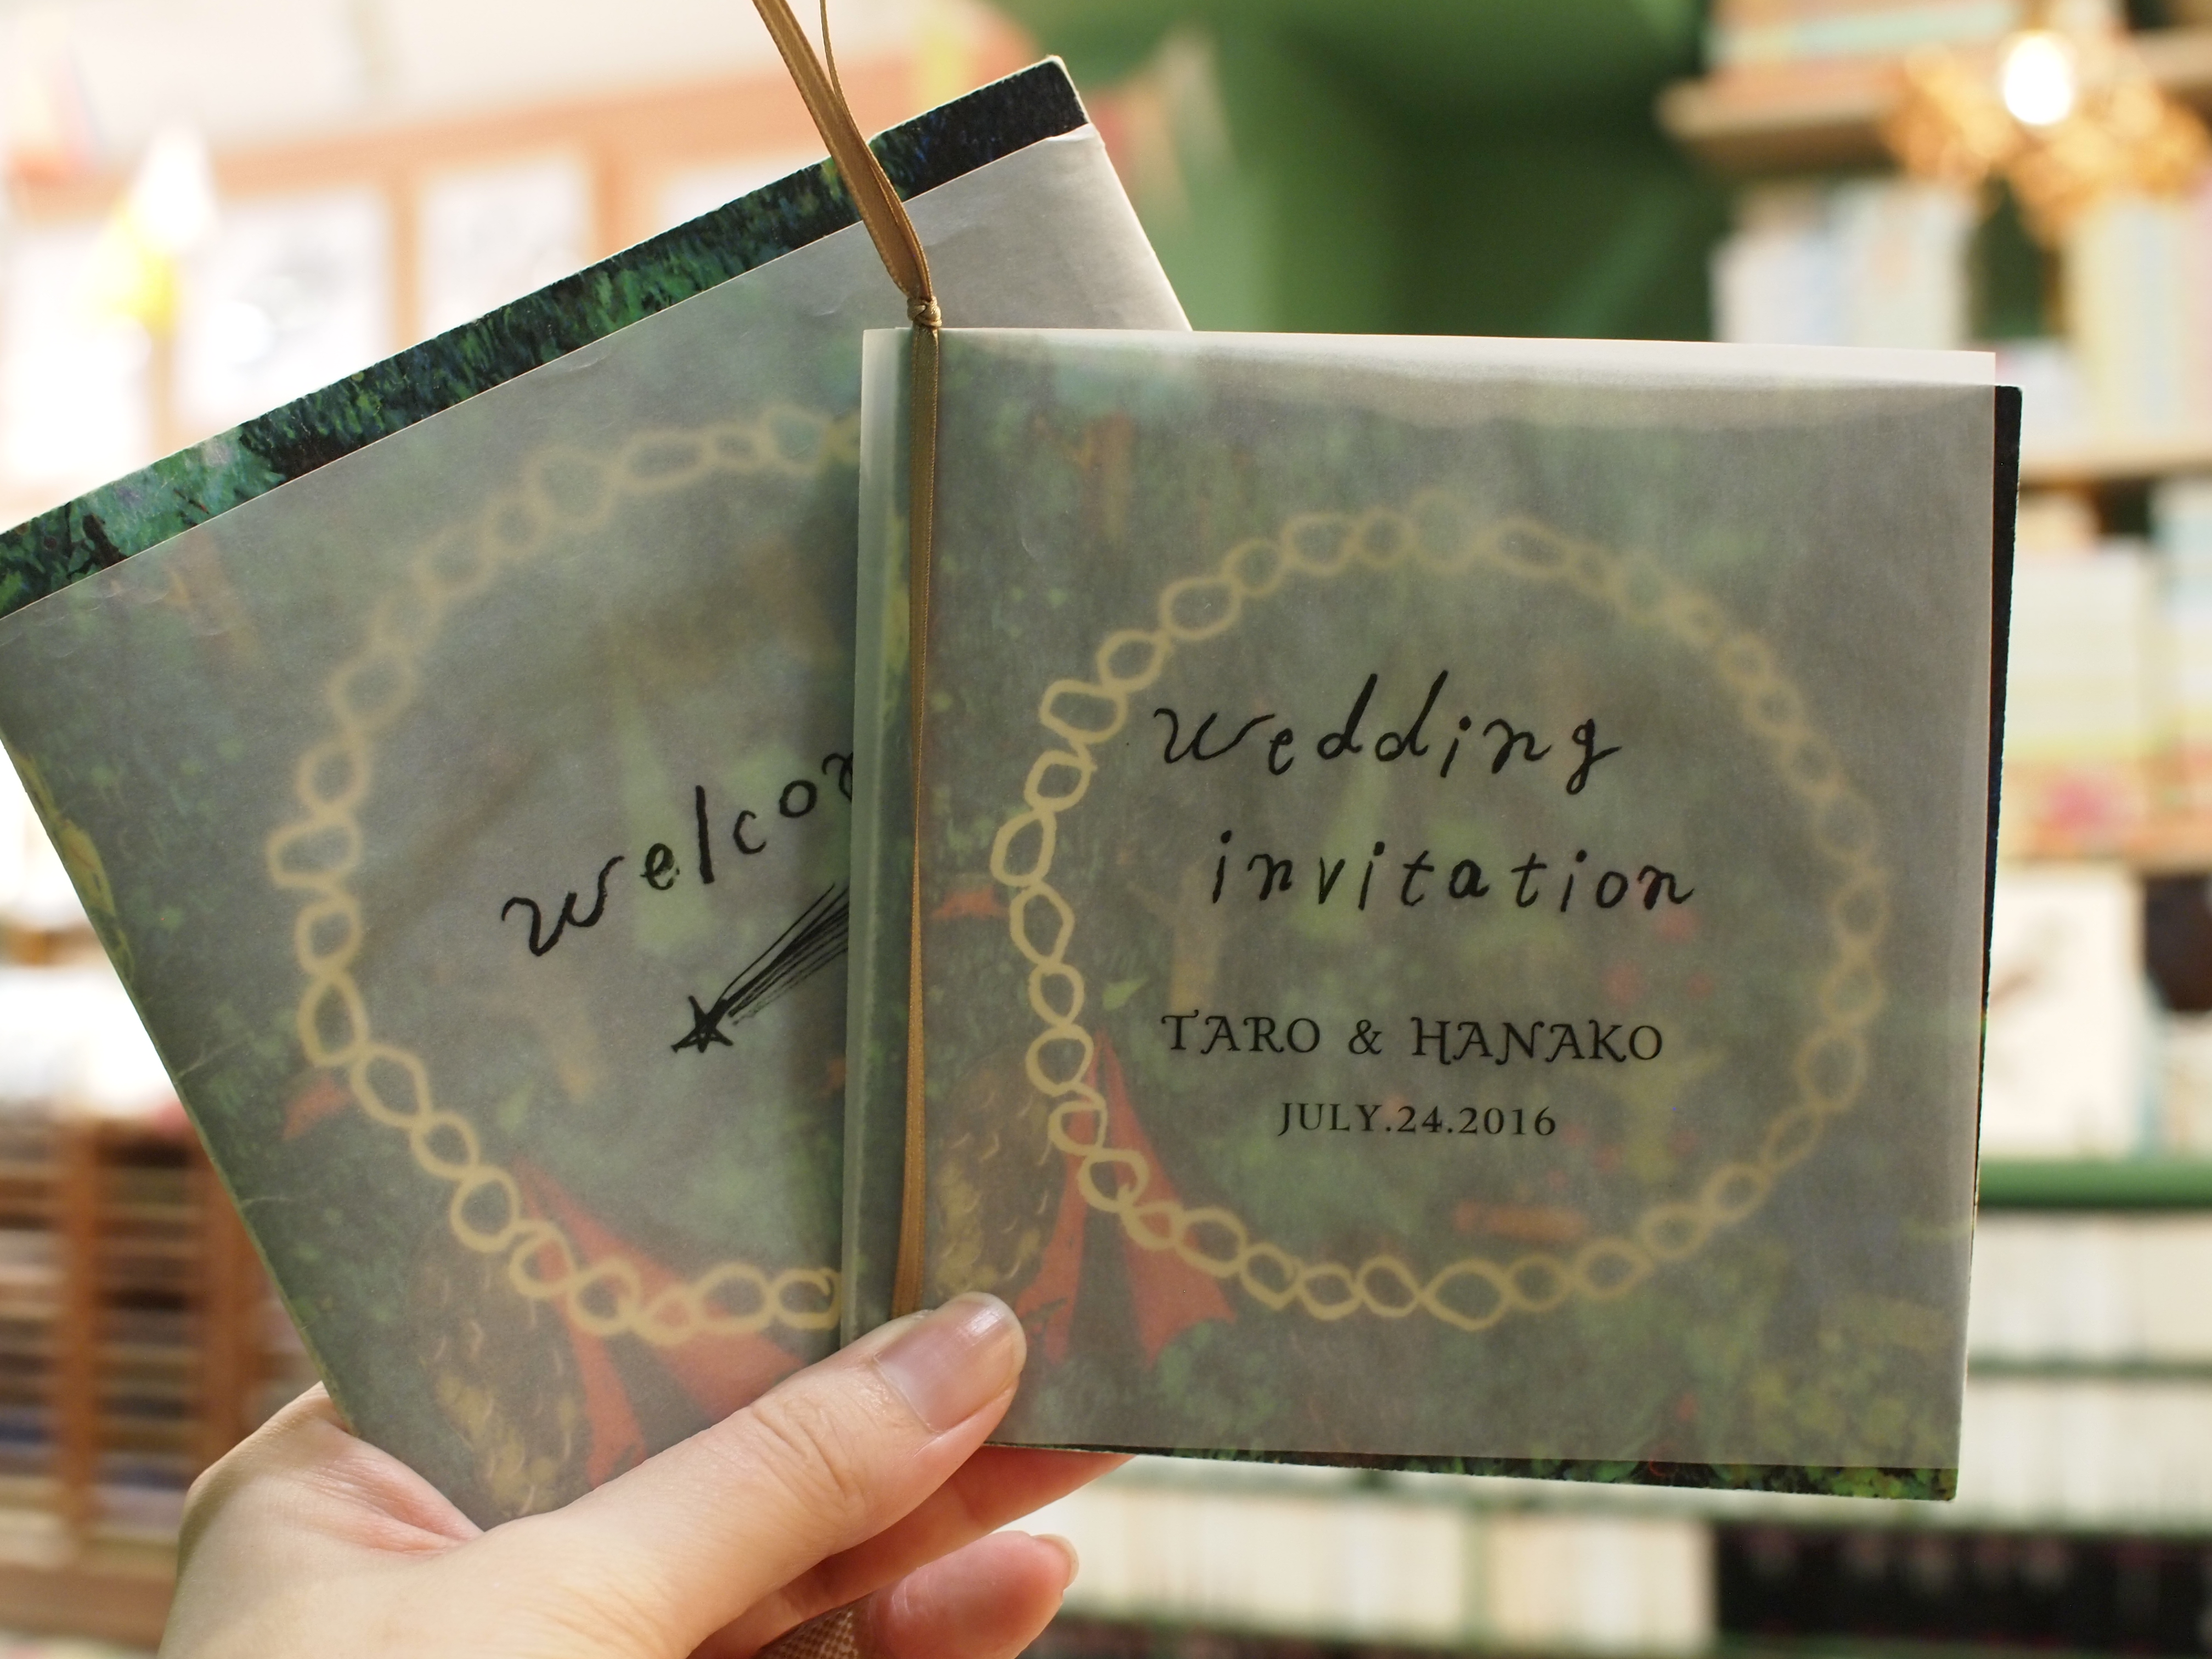 welcom
wedding
invitation
TARO & HANAKO
JULY.24.2016